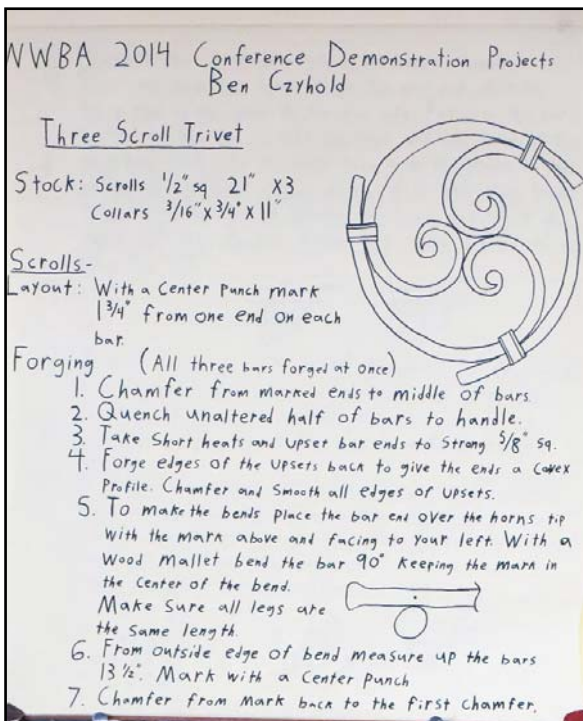 NWBA 2014 Conference Demonstration Projects
Ben Czyhold
Three Scroll Trivet
Stock: Scrolls 1/2" sq 21" x3
Collars 3/16" x 3/4" x 11"
Scrolls-
Layout: With a Center Punch mark
1 3/4" from one end on each
bar.
Forging (All three bars forged at once)
1. Chamfer from marked ends to middle of bars.
2. Quench unaltered half of bars to handle.
3. Take Short heats and upset bar ends to Strong 5/8" sq.
4. Forge edges of the upsets back to give the ends a Covex
Profile. Chamfer and Smooth all edges of upsets.
5. To make the bends place the bar end over the horns tip
with the mark above and facing to your left. With a
wood mallet bend the bar 90° keeping the mark in
the center of the bend.
Make Sure all legs are
the same length.
6. From outside edge of bend measure up the bars
13 1/2". Mark with a Center Punch
7. Chamfer from mark back to the first chamfer.